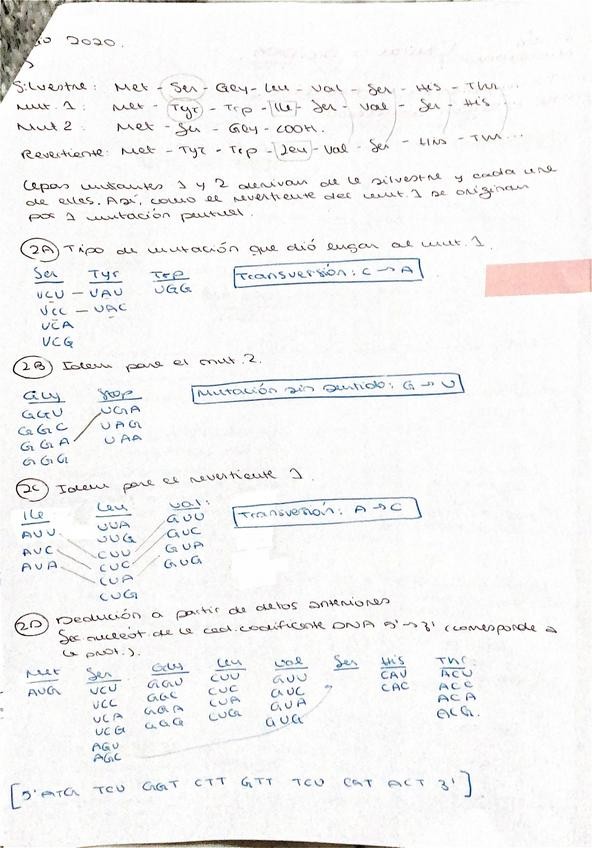 2020.
Silvestre: Met - Ser - Gly - Leu - Val - Ser - His - Thr...
Mut. 1: Met - Tyr - Trp - Ile - Ser - Val - Ser - His
Mut 2: Met - Ser - Gly - COOH.
Revertiente: Met - Tyr - Trp - Leu - Val - Ser - His - Thr...
Cepas mutantes 1 y 2 derivan de la silvestre y cada una
de ellas. Así, como el revertiente del mut. 1 se originan
por 1 mutación puntual.
2A Tipo de mutación que dió lugar al mut. 1.
Ser Tyr Trp
UCU - UAU UGG
UCC - UAC
UCA
UCG
Transversión: C → A
2B Idem para el mut. 2.
Gly Stop
GGU UGA
GGC UAG
GGA UAA
GGG
Mutación sin sentido: G → U
2C Idem para el revertiente 1.
Ile Leu Val:
AUU UUA GUU
AUC UUG GUC
AUA CUU GUA
CUC GUG
CUA
CUG
Transversión: A → C
2D Dedución a partir de datos anteriores
Sec. nucleót. de la cad. codificante DNA 5' → 3' (corresponde a
la prot.).
Met Ser Gly Leu Val Ser His Thr
AUG UCU GGU CUU GUU CAU ACU
UCC GGC CUC GUC CAC ACC
UCA GGA CUA GUA ACA
UCG GGG CUG GUG ACG.
AGU
AGC
[5' ATG TCU GGT CTT GTT TCU CAT ACT 3']